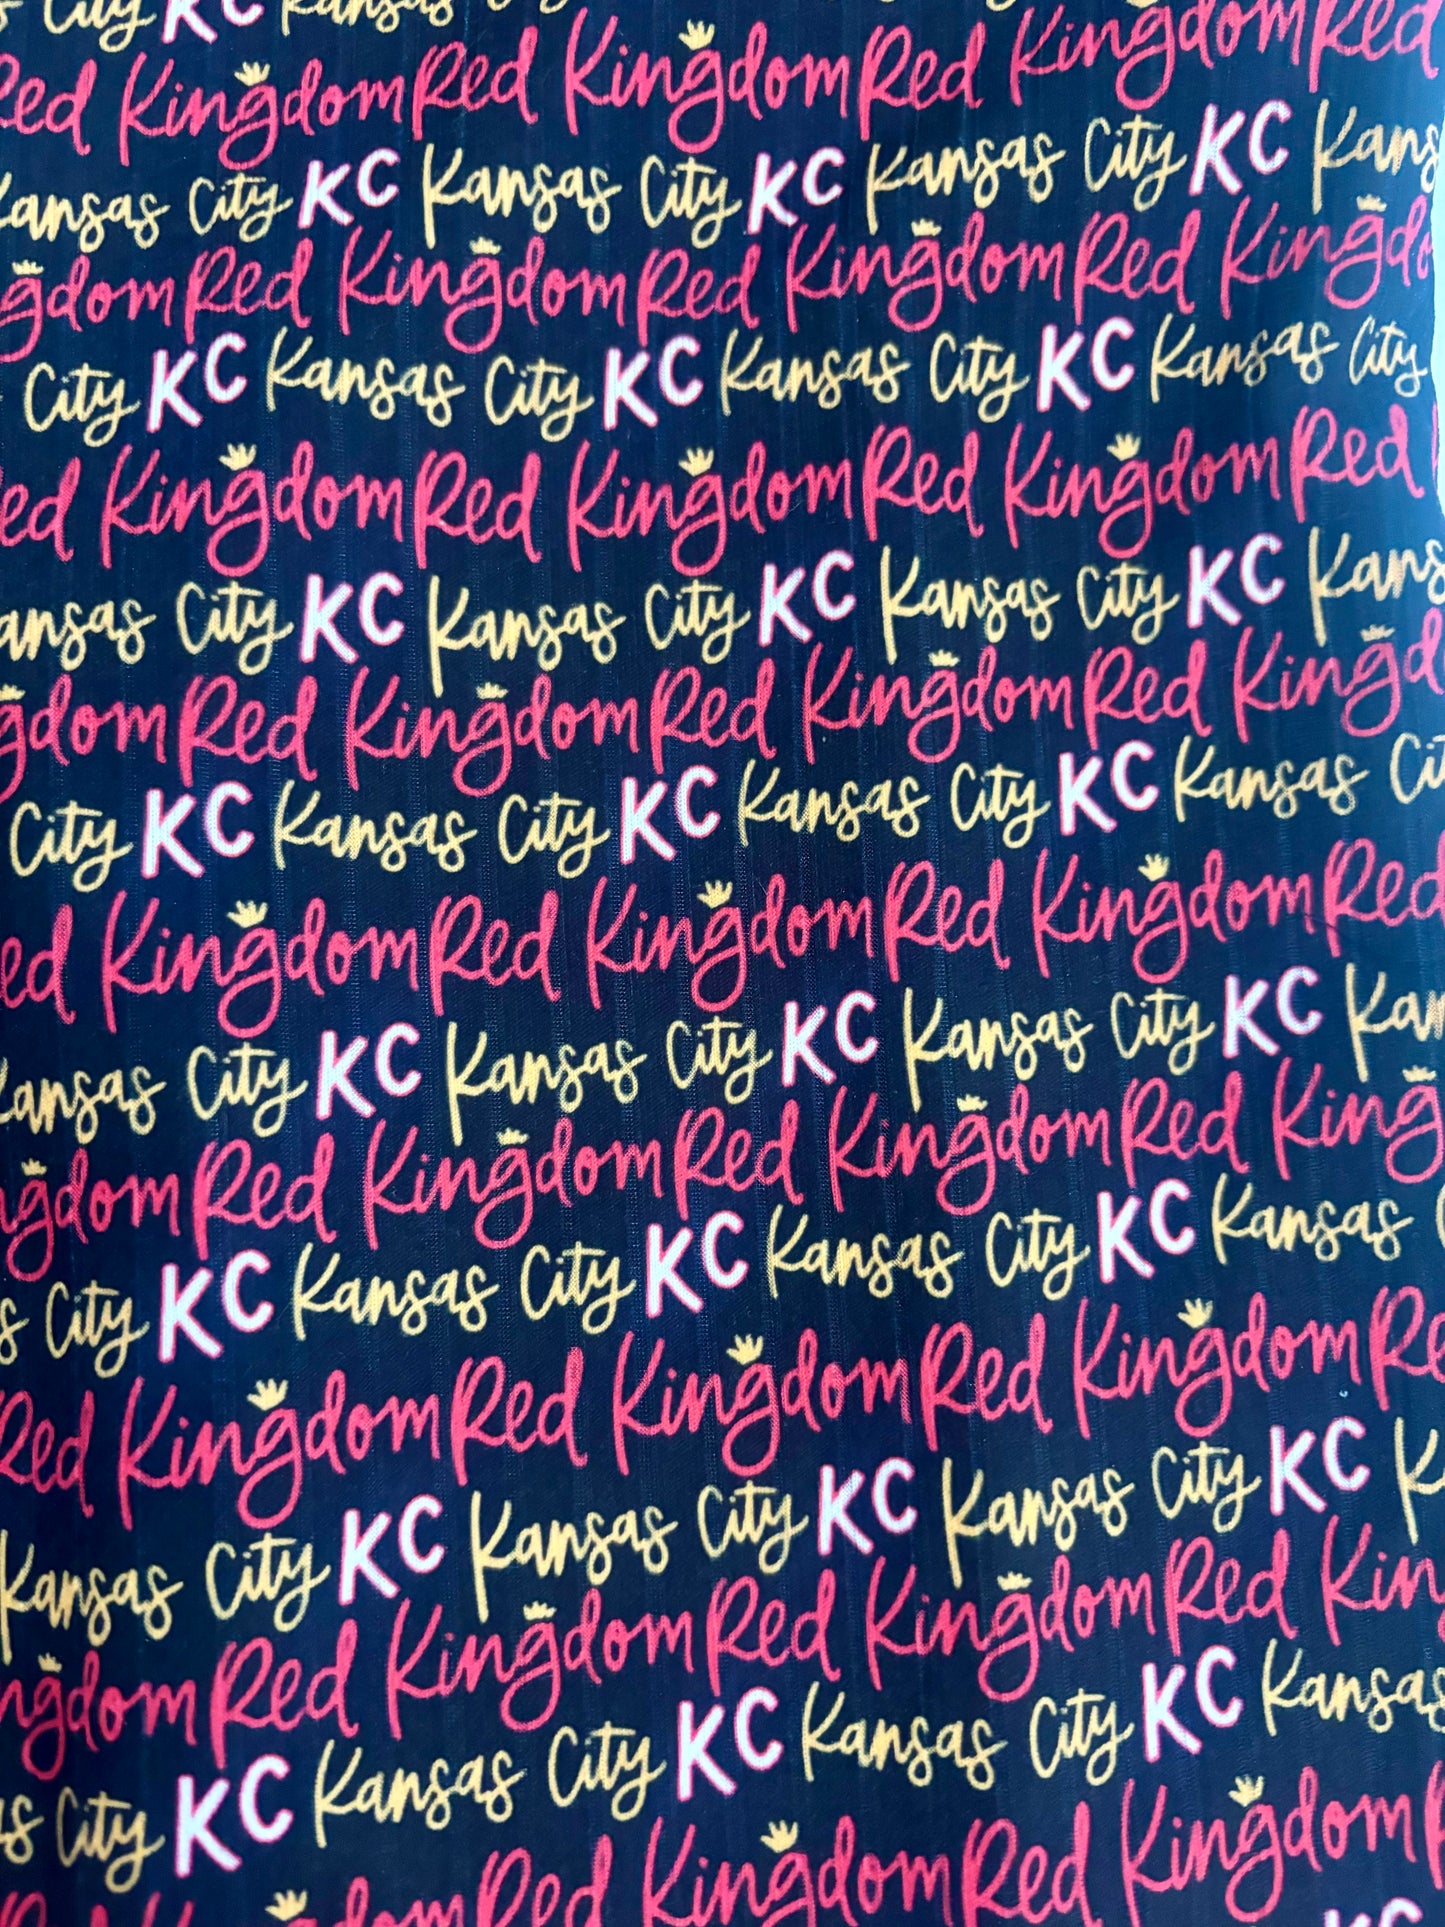 City KC Kansas City
Red Kingdom Red Kingdom Red Kingdom Red
Kansas City KC Kansas City KC Kansas City KC Kans
gdom Red Kingdom Red Kingdom Red Kingdo
City KC Kansas City KC Kansas City KC Kansas City
ed Kingdom Red Kingdom Red Kingdom Red
ansas City KC Kansas City KC Kansas City KC Kans
gdom Red Kingdom Red Kingdom Red Kingd
City KC Kansas City KC Kansas City KC Kansas Cit
ed Kingdom Red Kingdom Red Kingdom Red
Kansas City KC Kansas City KC Kansas City KC Kan
ngdom Red Kingdom Red Kingdom Red King
s City KC Kansas City KC Kansas City KC Kansas
Red Kingdom Red Kingdom Red Kingdom Re
Kansas City KC Kansas City KC Kansas City KC K
ngdom Red Kingdom Red Kingdom Red Kin
as City KC Kansas City KC Kansas City KC Kansas
Kingdom Red Kingdom Red Kingdom
KC